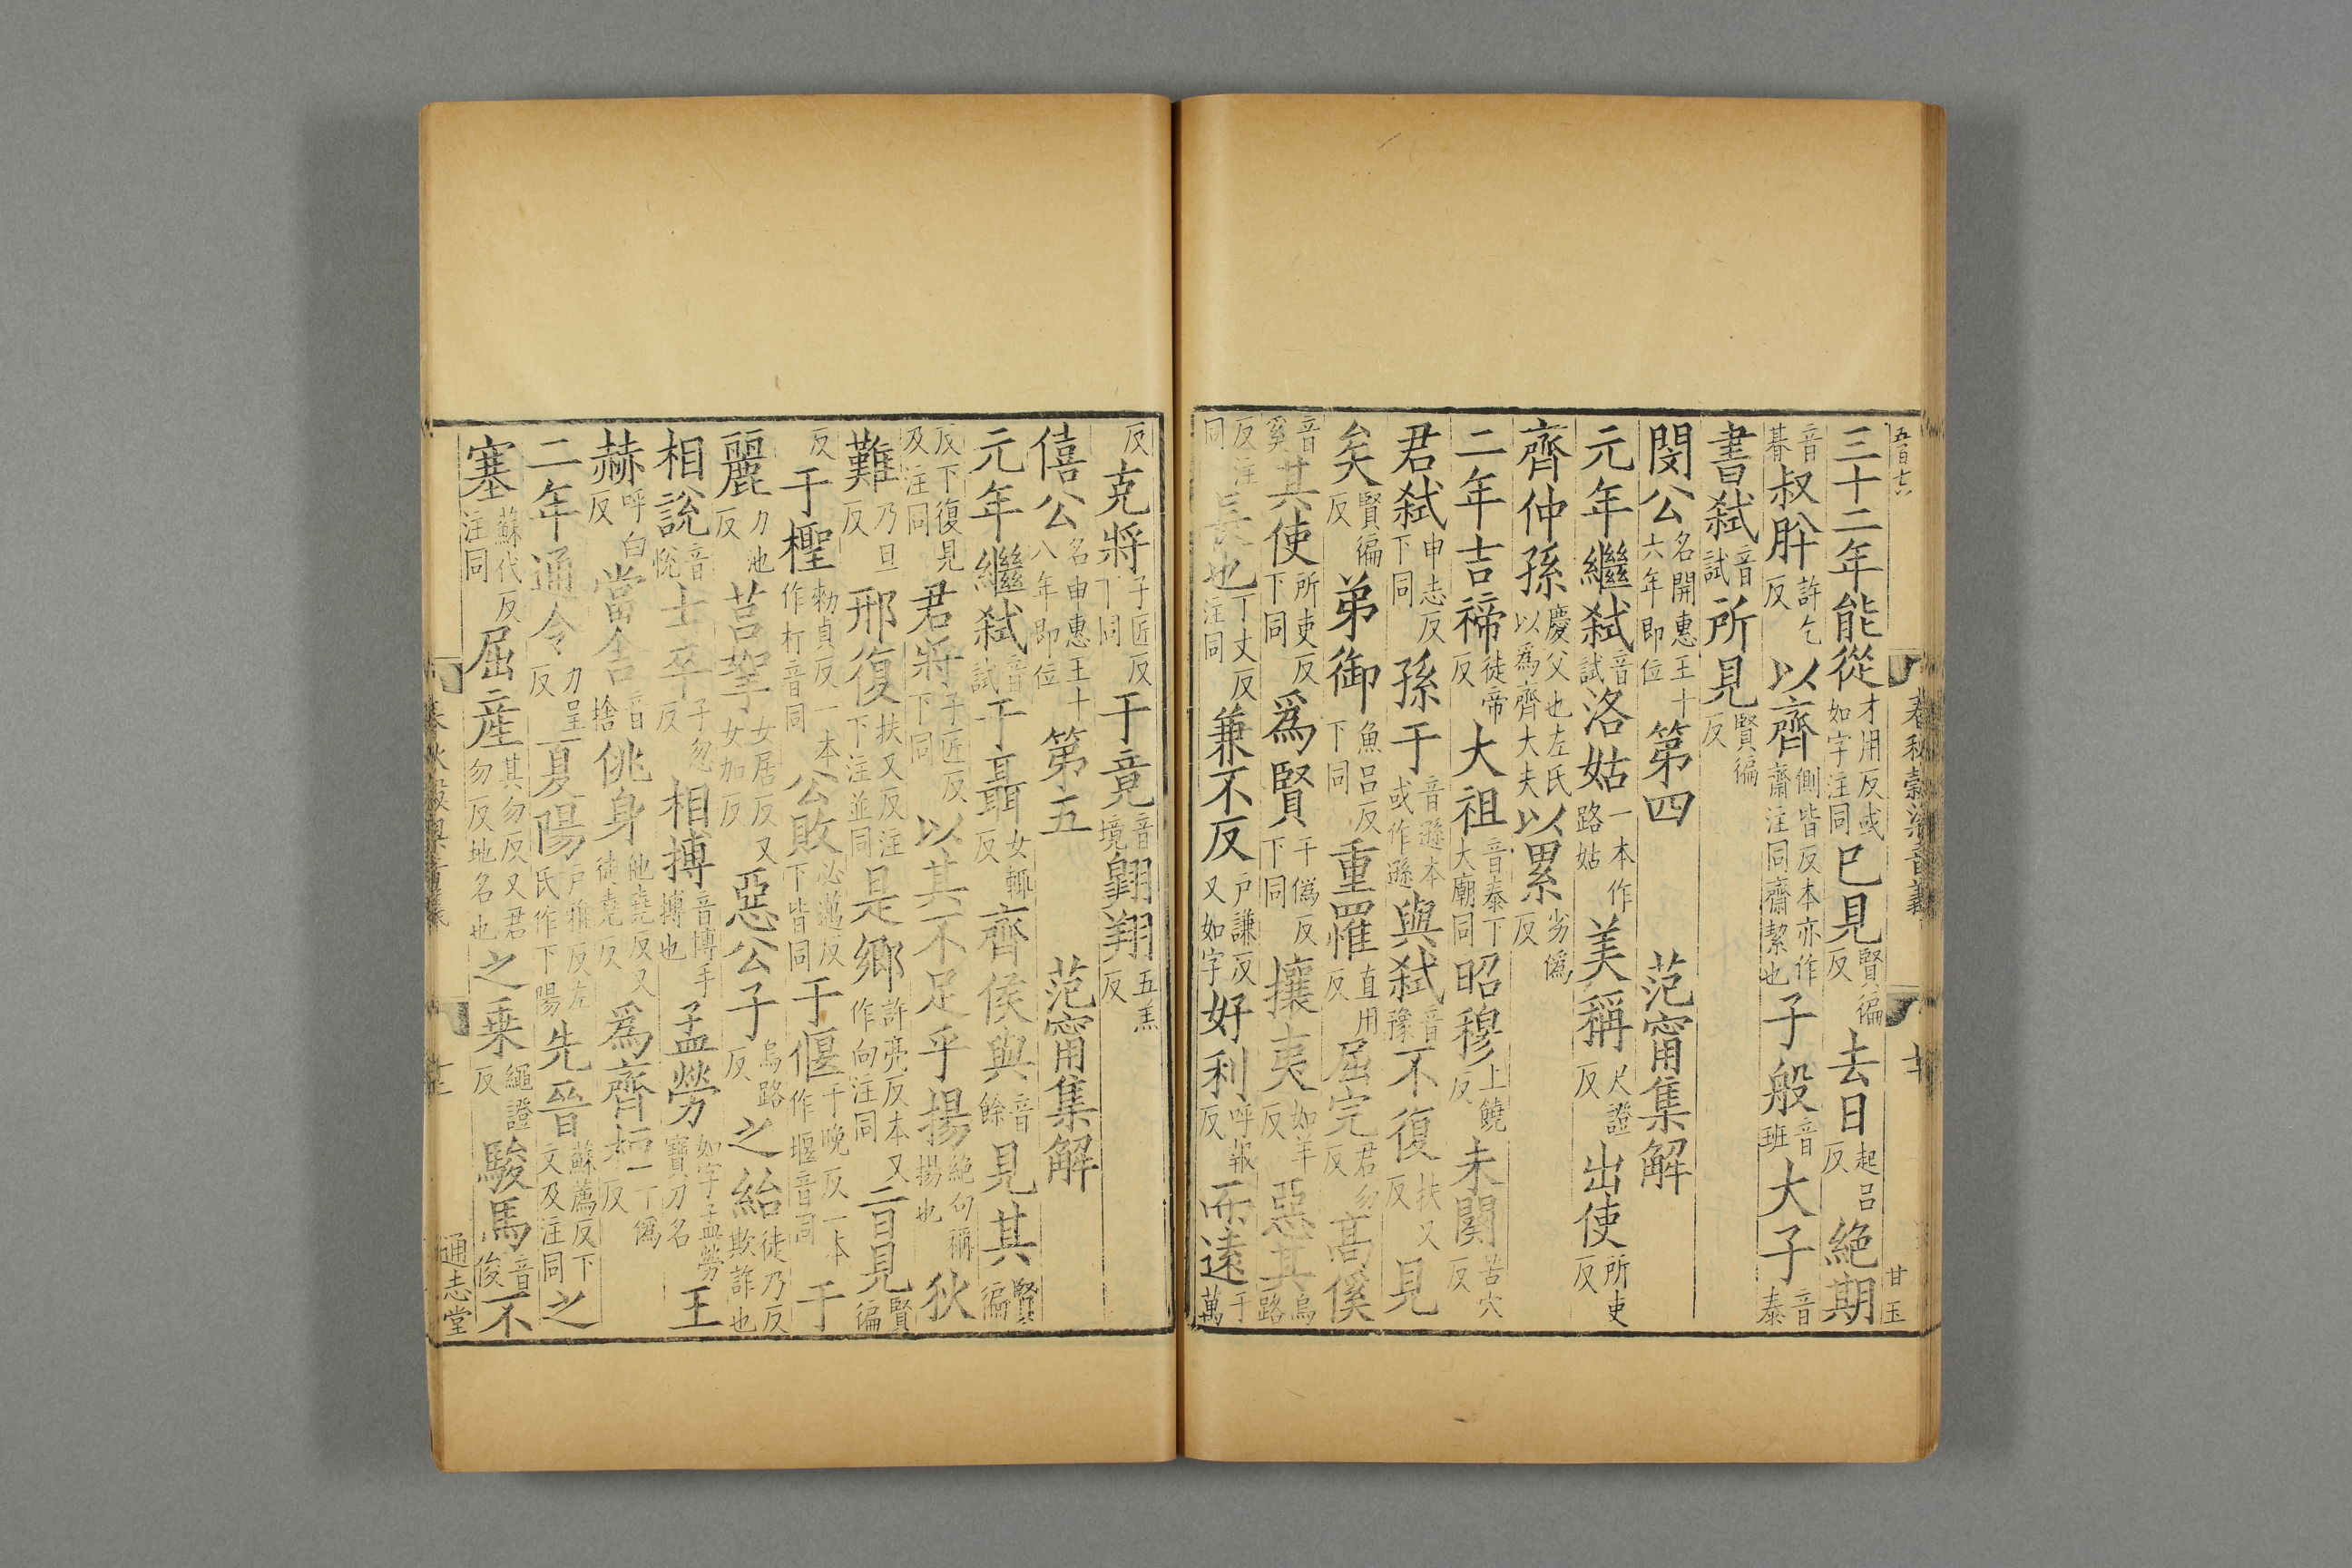 三十二年能從才用反或如字注同已見賢徧反去日起呂反絕期
音朞叔肸許乞反以齊側皆反本亦作齋注同齋絜也子般音班大子音泰
書弒音試所見賢徧反
閔公名開惠王十六年即位第四 范甯集解
元年繼弒音試洛姑一本作路姑美稱尺證反出使所吏反
齊仲孫慶父也左氏以為齊大夫以累劣僞反
二年吉禘徒帝反大祖音泰下大廟同昭穆上饒反未闋苦穴反
君弒申志反下同孫于音遜本或作遜與弒音豫不復扶又反見
矣賢徧反弟御魚呂反下同重罹直用反屈完君勿反高傒
音奚其使所吏反下同爲賢于僞反下同攘夷如羊反惡其烏路
反注同長也丁丈反注同兼不反戶謙反又如字好利呼報反而遠于萬
反克將子匠反下同于竟音境翺翔五羔反
僖公名申惠王十八年即位第五 范甯集解
元年繼弒音試于聶女輒反齊侯與音餘見其賢徧
反下復見及注同君將子匠反下同以其不足乎揚絕句稱揚也狄
難乃旦反邢復扶又反注下注並同是鄉許亮反本又作向注同一見賢徧
反于檉勑貞反一本作朾音同公敗必邁反下皆同于偃于晚反一本作堰音同于
麗力池反莒挐女居反又女加反惡公子烏路反之紿徒乃反欺詐也
相說音悅士卒子忽反相搏音博手搏也孟勞如字孟勞寶刀名王
赫呼白反當舍音捨佻身他堯反又徒堯反爲齊桓于僞反
二年通令力呈反夏陽戶雅反左氏作下陽先晉蘇薦反下文及注同之
塞蘇代反注同屈産其勿反又君勿反地名也之乗繩證反駿馬音俊不
春秋穀梁音義
甘玉
通志堂